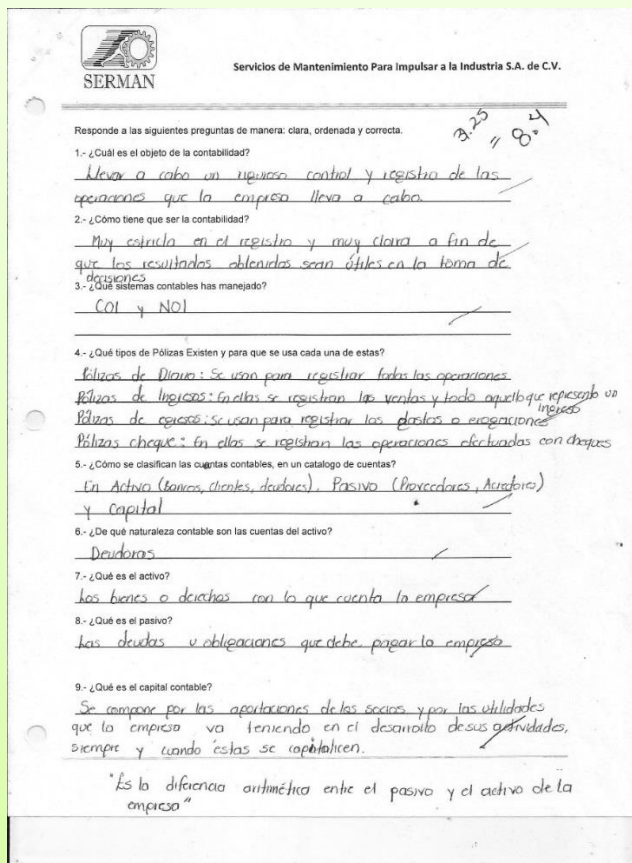 SERMAN
Servicios de Mantenimiento Para Impulsar a la Industria S.A. de C.V.
3.25 = 8.4
Responde a las siguientes preguntas de manera: clara, ordenada y correcta.
1.- ¿Cuál es el objeto de la contabilidad?
Llevar a cabo un riguroso control y registro de las
operaciones que la empresa lleva a cabo.
2.- ¿Cómo tiene que ser la contabilidad?
Muy estricta en el registro y muy clara a fin de
que los resultados obtenidos sean útiles en la toma de
decisiones
3.- ¿Qué sistemas contables has manejado?
COI y NOI
4.- ¿Qué tipos de Pólizas Existen y para que se usa cada una de estas?
Pólizas de Diario: Se usan para registrar todas las operaciones
Pólizas de Ingresos: En ellas se registran las ventas y todo aquello que represente un
ingreso
Pólizas de egresos: se usan para registrar los gastos o erogaciones
Pólizas cheque: En ellas se registran las operaciones efectuadas con cheques
5.- ¿Cómo se clasifican las cuentas contables, en un catalogo de cuentas?
En Activo (Bancos, clientes, deudores), Pasivo (Proveedores, Acredores)
y Capital
6.- ¿De qué naturaleza contable son las cuentas del activo?
Deudoras
7.- ¿Qué es el activo?
Los bienes o derechos con lo que cuenta la empresa
8.- ¿Qué es el pasivo?
Las deudas u obligaciones que debe pagar la empresa
9.- ¿Qué es el capital contable?
Se compone por las aportaciones de los socios y por las utilidades
que la empresa va teniendo en el desarrollo de sus actividades,
siempre y cuando éstas se capitalicen.
"Es la diferencia aritmética entre el pasivo y el activo de la
empresa"